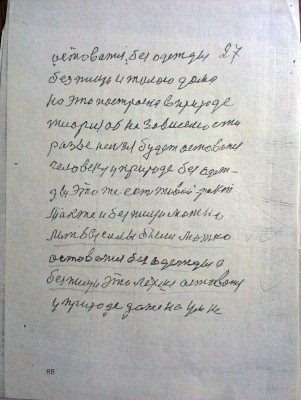 остоватся без одежды 27
без пищи и жилого дома
но это построино в природе
теория об не зависемости
разве нельзя будет остоватся
человеку в природе без одеж-
ды это же есть живой факт
также и без пищи можно
если бы можно
остоватся без одежды и
без пищи это легко остоватся
у природе даже на
88